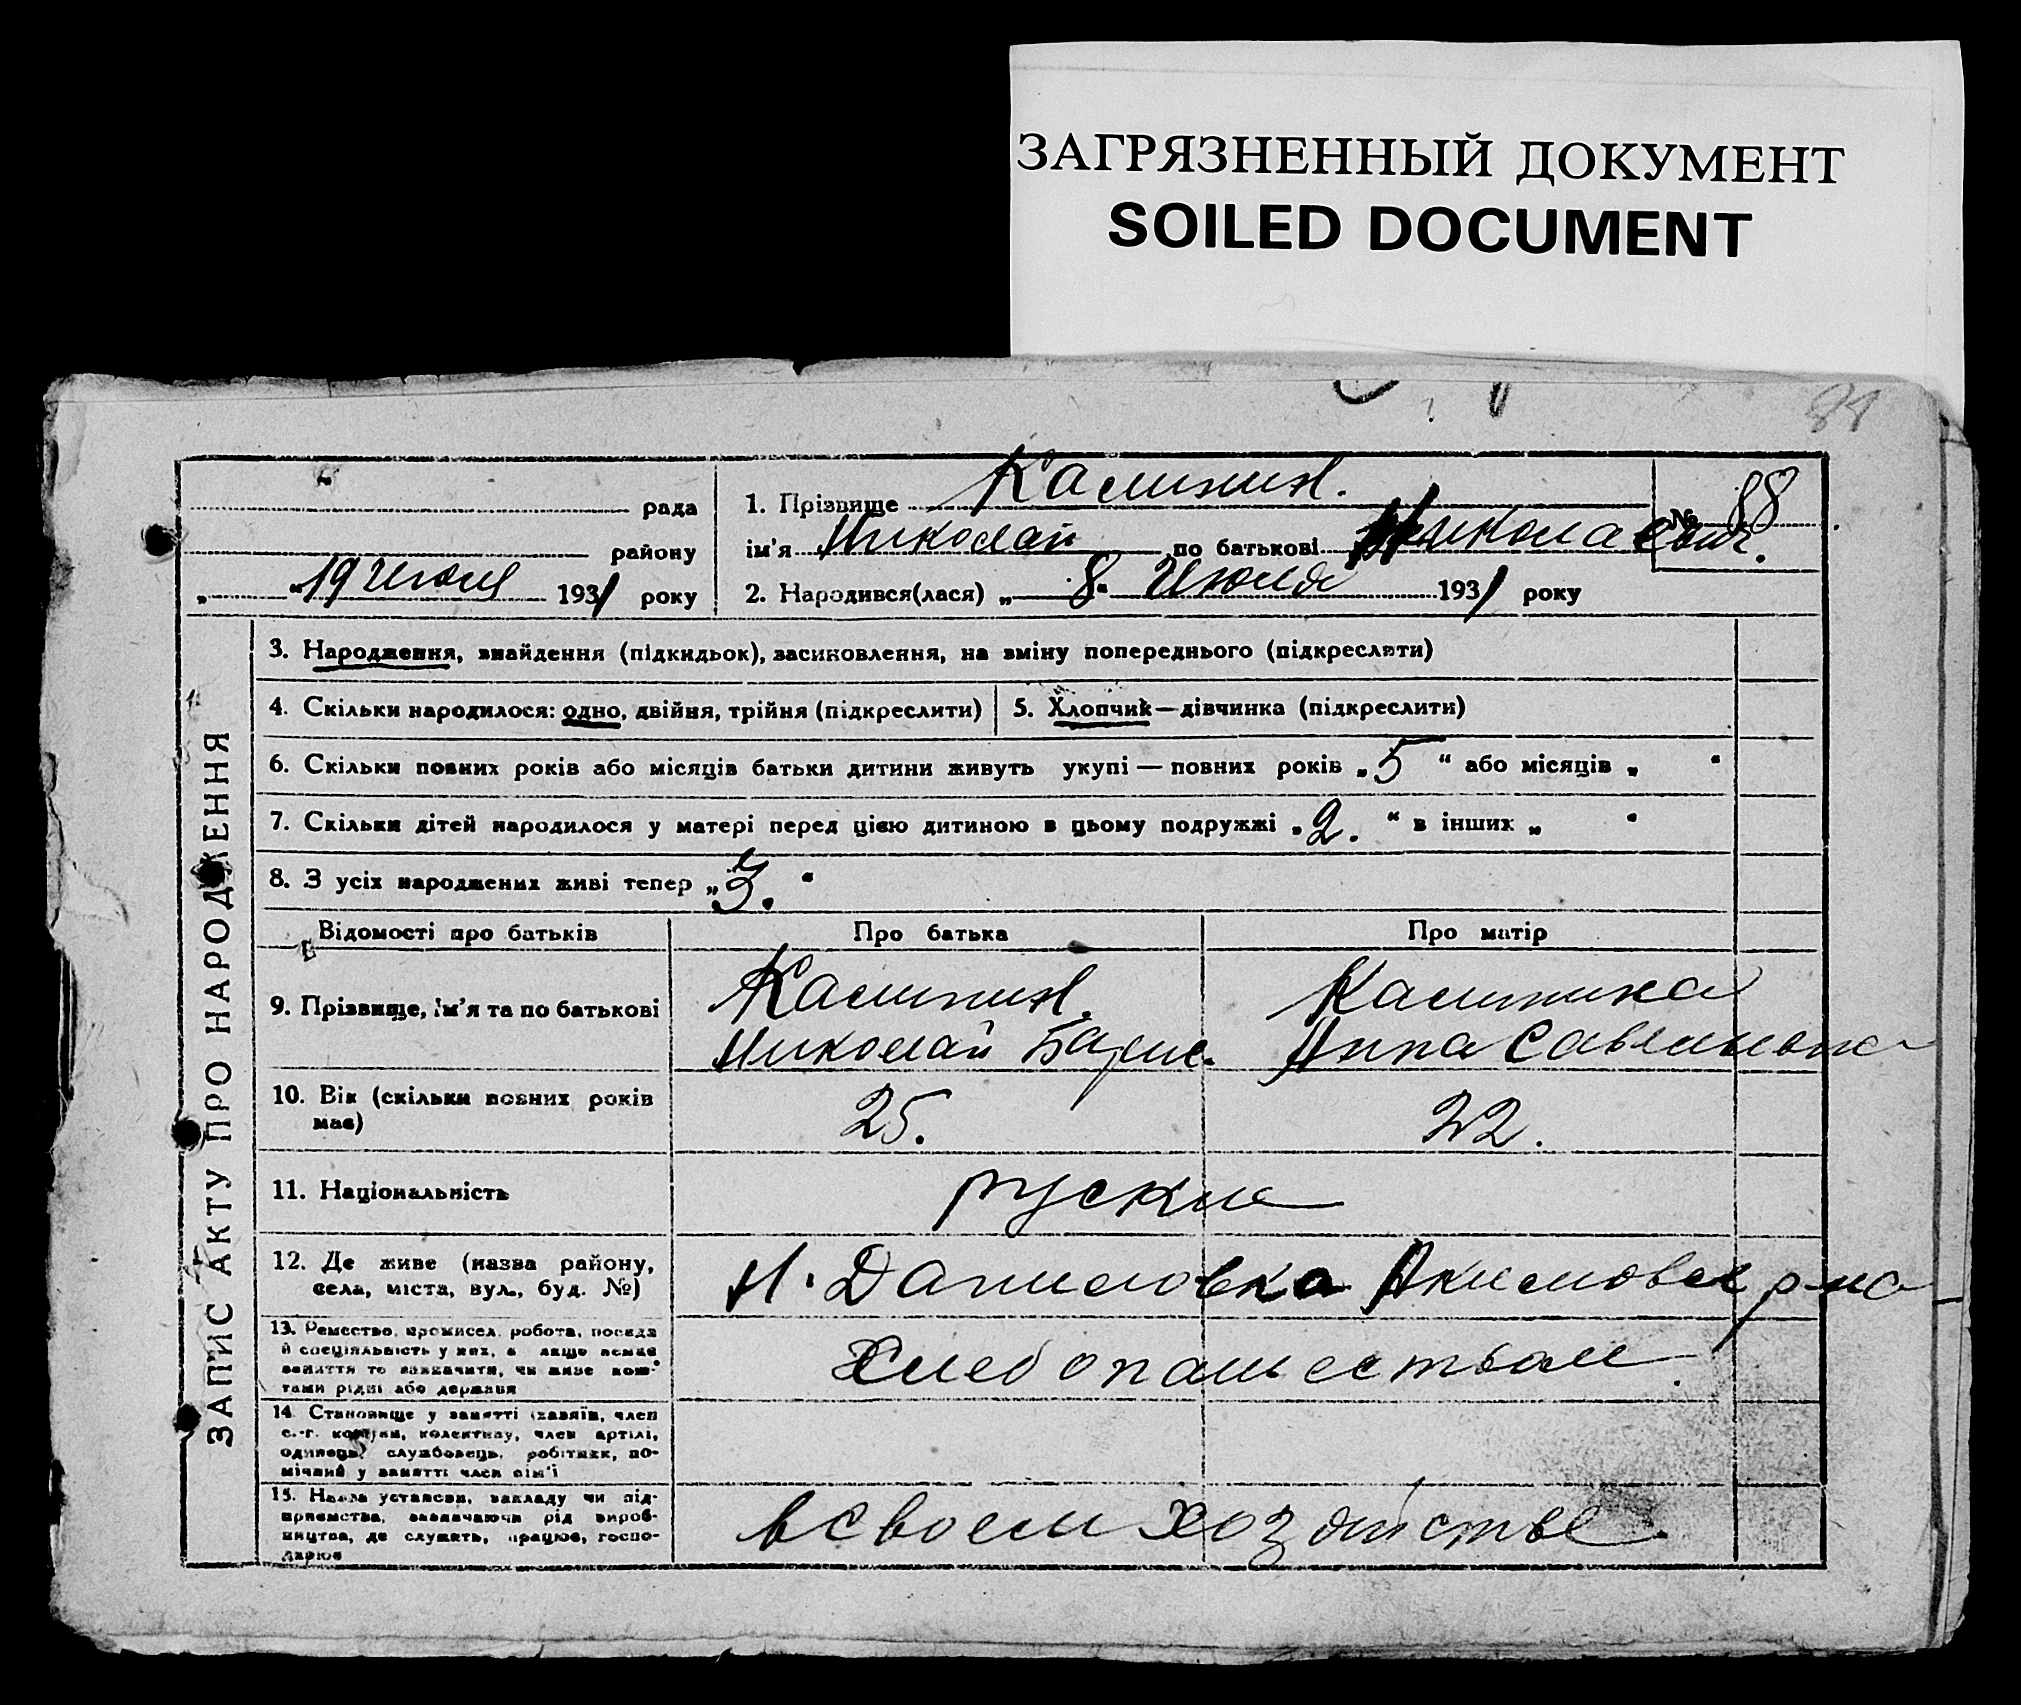 ЗАГРЯЗНЕННЫЙ ДОКУМЕНТ
SOILED DOCUMENT
рада
району
„ “ 19 Июля 1931 року
1. Прізвище Калинин.
ім'я Николай по батькові Николаевич.
№ 88
2. Народився(лася) „ 8 “ Июля 1931 року
ЗАПИС АКТУ ПРО НАРОДЖЕННЯ
3. Народження, знайдення (підкидьок), засиновлення, на зміну попереднього (підкреслити)
4. Скільки народилося: одно, двійня, трійня (підкреслити)
5. Хлопчик—дівчинка (підкреслити)
6. Скільки повних років або місяців батьки дитини живуть укупі — повних років „ 5 “ або місяців „ “
7. Скільки дітей народилося у матері перед цією дитиною в цьому подружжі „ 2. “ в інших „ “
8. З усіх народжених живі тепер „ 3. “
Відомості про батьків Про батька Про матір
9. Прізвище, ім'я та по батькові
Калинин.
Николай Барис.
Калинина
Анна Савельивна
10. Вік (скільки повних років
має)
25. 22.
11. Національність руские
12. Де живе (назва району,
села, міста, вул., буд. №)
Н. Даниловка Акимовск р-на
13. Ремество, промисел, робота, посада
й спеціяльність у них, а якщо немає
заняття то зазначити, чи живе кош-
тами рідні або держави
Хлебопашеством.
14. Становище у занятті (хазяїн, член
с.-г. комуни, колективу, член артілі,
одинець, службовець, робітник, по-
мічний у занятті член сім'ї
15. Назва установи, закладу чи під-
приємства, зазначаючи рід вироб-
ництва, де служить, працює, госпо-
дарює
в своем хозяйстве.